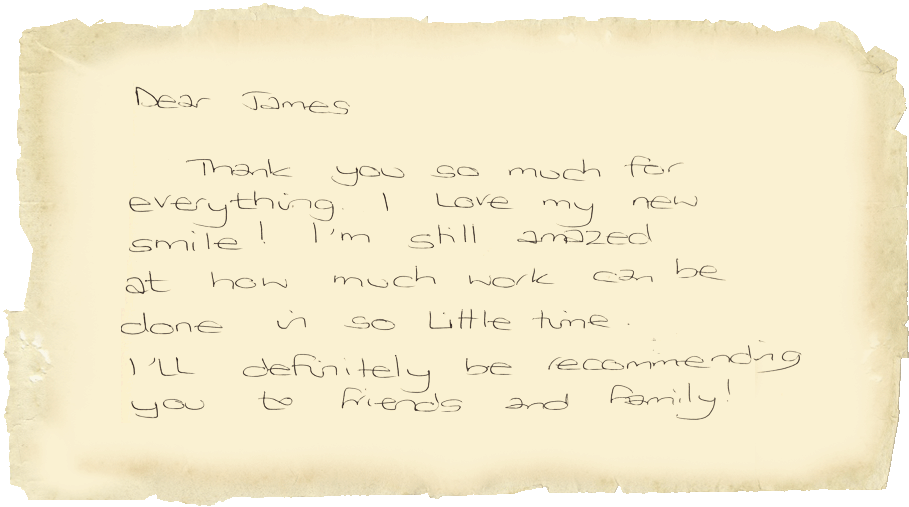 Dear James
Thank you so much for
everything. I Love my new
smile! I'm still amazed
at how much work can be
done in so little time.
I'll definitely be recommending
you to friends and family!